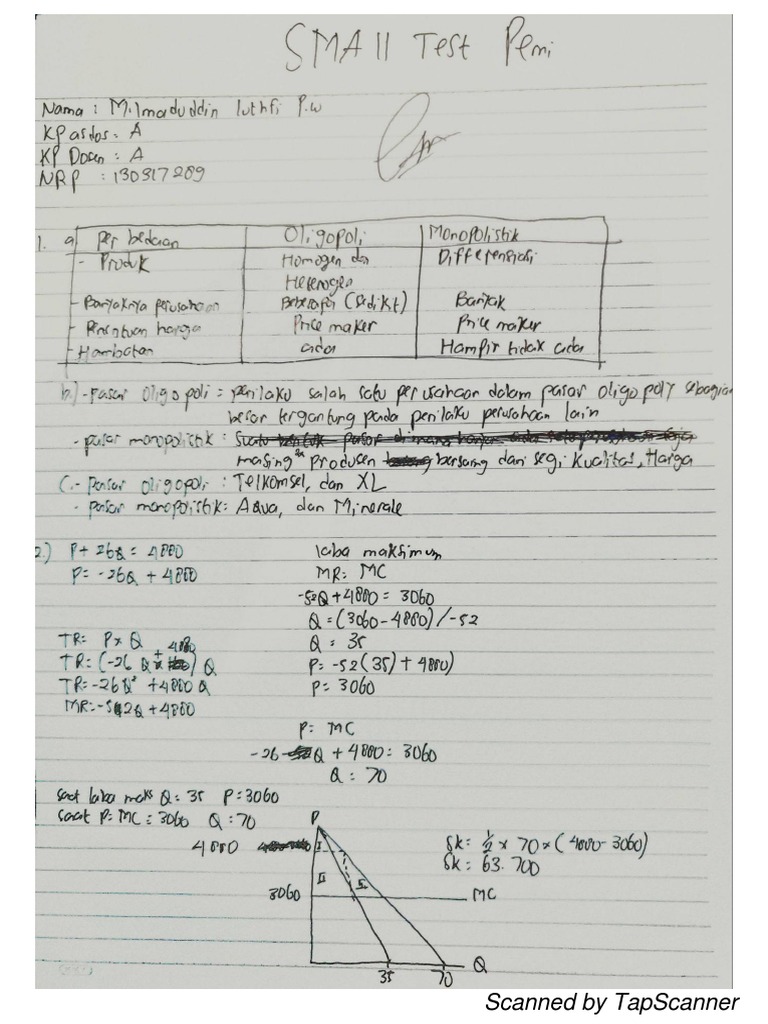 SMALL Test Pemi
Nama : M. Imaduddin luthfi P.w
KP asdos : A
KP Dosen : A
NRP : 130317289
1. a) Perbedaan Oligopoli Monopolistik
- Produk Homogen dan Differensiasi
Heterogen
- Banyaknya perusahaan Beberapa (Sedikit) Banyak
- Penentuan harga Price maker Price maker
- Hambatan ada Hampir tidak ada
b.) - pasar Oligopoli : perilaku salah satu perusahaan dalam pasar Oligopoly sebagian
besar tergantung pada perilaku perusahaan lain
- pasar monopolistik :
masing² produsen bersaing dari segi kualitas, Harga
C. - Pasar oligopoli : Telkomsel, dan XL
- pasar monopolistik : Aqua, dan Minerale
2.) P + 26Q = 4880
P = -26Q + 4880
TR = P x Q
TR = (-26 Q + 4880) Q
TR = -26Q² + 4880 Q
MR = -52Q + 4880
laba maksimum
MR = MC
-52Q + 4880 = 3060
Q = (3060 - 4880) / -52
Q = 35
P = -52(35) + 4880)
P = 3060
P = MC
-26 Q + 4880 = 3060
Q = 70
saat laba maks Q = 35 P = 3060
saat P = MC = 3060 Q = 70
P
4880 I
II
3060 MC
35 70 Q
SK = ½ x 70 x (4880 - 3060)
SK = 63.700
Scanned by TapScanner